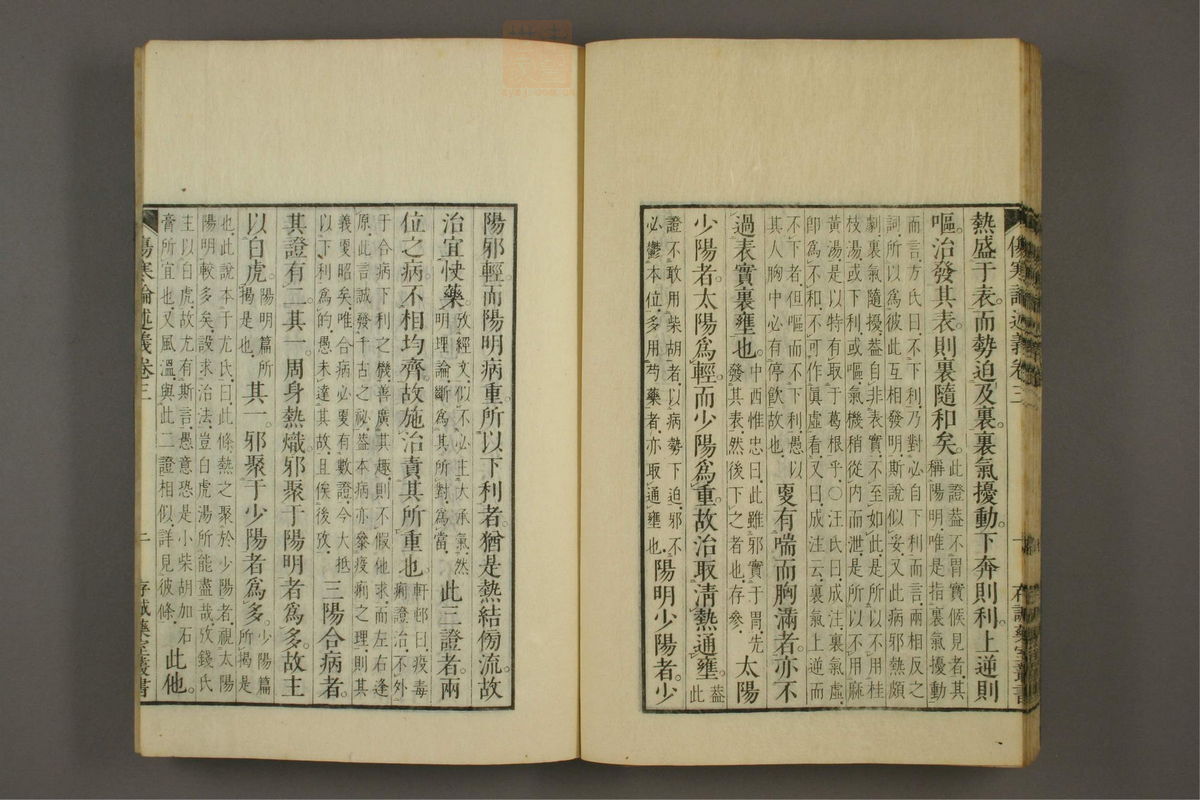 熱盛于表。而勢迫及裏。裏氣擾動。下奔則利。上逆則
嘔。治發其表。則裏隨和矣。
此證蓋不胃實候見者其
稱陽明唯是指裏氣擾動
而言方氏曰不下利乃對必自下利而言兩相反之
詞所以爲彼此互相發明斯說似妥又此病邪熱頗
劇裏氣隨擾蓋自非表實不至如此是所以不用桂
枝湯或下利或嘔氣機稍從内而泄是所以不用麻
黃湯是以特有取于葛根乎○汪氏曰成注裏氣虛
卽爲不和不可作眞虛看又曰成注云裏氣上逆而
不下者但嘔而不下利愚以
其人胸中必有停飲故也
更有喘而胸滿者。亦不
過表實裏壅也。
中西惟忠曰此雖邪實于胃先
發其表然後下之者也存參
太陽
少陽者。太陽爲輕。而少陽爲重。故治取清熱通壅。
蓋
此
證不敢用柴胡者以病勢下迫邪不
必鬱本位多用芍藥者亦取通壅也
陽明少陽者。少
陽邪輕。而陽明病重。所以下利者。猶是熱結傍流。故
治宜快藥。
攷經文似不必主大承氣然
明理論斷爲其所對爲當
此三證者。兩
位之病。不相均齊。故施治責其所重也。
軒邨曰疫毒
痢證治不外
于合病下利之機善廣其趣則不假他求而左右逢
原此言誠發千古之祕蓋本病亦嘗疫痢之理則其
義更昭矣唯合病必更有數證今大抵
以下利爲的愚未達其故且俟後攷
三陽合病者。
其證有二。其一。周身熱熾。邪聚于陽明者爲多。故主
以白虎。
陽明篇所
揭是也
其一。邪聚于少陽者爲多。
少陽篇
所揭是
也此說本于尤氏曰此條熱之聚於少陽者視太陽
陽明較多矣設求治法豈白虎湯所能盡哉攷錢氏
主以白虎故尤有斯言愚意恐是小柴胡加石
膏所宜也又風溫與此二證相似詳見彼條
此他。
傷寒論述義卷三
十一
存誠藥室叢書